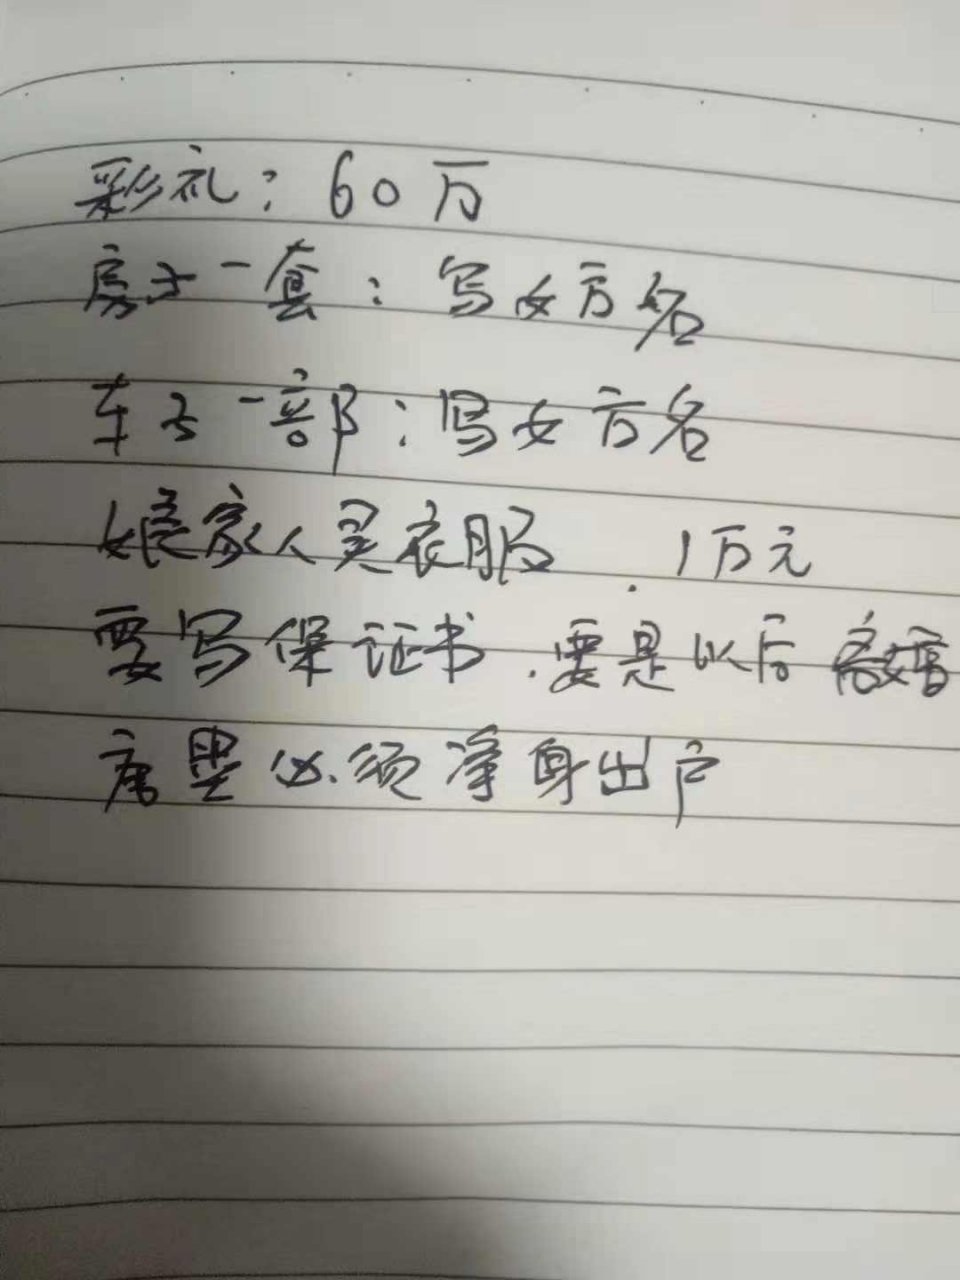 彩礼：60万
房子一套：写女方名
车子一部：写女方名
娘家人买衣服 . 1万元
要写保证书.要是以后离婚
唐果必须净身出户